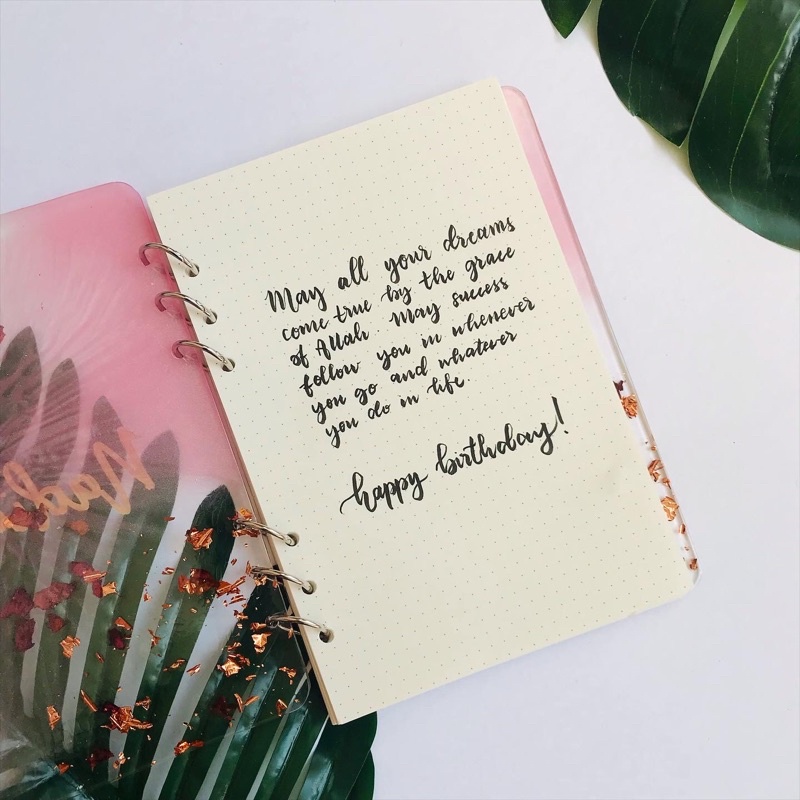 May all your dreams
come true by the grace
of Allah. May success
follow you in whenever
you go and whatever
you do in life.
happy birthday!